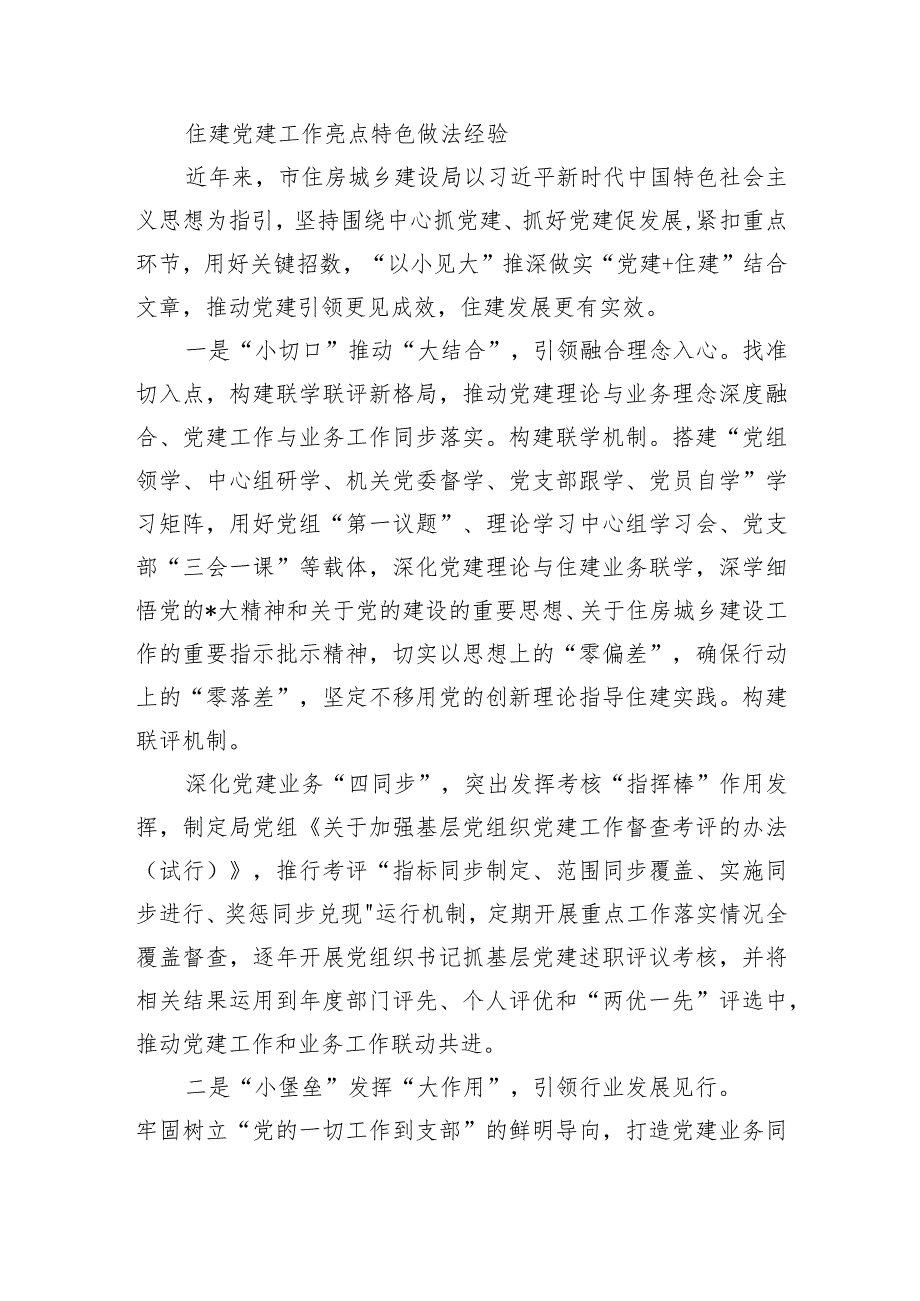 住建党建工作亮点特色做法经验
近年来，市住房城乡建设局以习近平新时代中国特色社会主
义思想为指引，坚持围绕中心抓党建、抓好党建促发展,紧扣重点
环节，用好关键招数，“以小见大”推深做实“党建+住建”结合
文章，推动党建引领更见成效，住建发展更有实效。
一是“小切口”推动“大结合”，引领融合理念入心。找准
切入点，构建联学联评新格局，推动党建理论与业务理念深度融
合、党建工作与业务工作同步落实。构建联学机制。搭建“党组
领学、中心组研学、机关党委督学、党支部跟学、党员自学”学
习矩阵，用好党组“第一议题”、理论学习中心组学习会、党支
部“三会一课”等载体，深化党建理论与住建业务联学，深学细
悟党的*大精神和关于党的建设的重要思想、关于住房城乡建设工
作的重要指示批示精神，切实以思想上的“零偏差”，确保行动
上的“零落差”，坚定不移用党的创新理论指导住建实践。构建
联评机制。
深化党建业务“四同步”，突出发挥考核“指挥棒”作用发
挥，制定局党组《关于加强基层党组织党建工作督查考评的办法
（试行）》，推行考评“指标同步制定、范围同步覆盖、实施同
步进行、奖惩同步兑现"运行机制，定期开展重点工作落实情况全
覆盖督查，逐年开展党组织书记抓基层党建述职评议考核，并将
相关结果运用到年度部门评先、个人评优和“两优一先”评选中，
推动党建工作和业务工作联动共进。
二是“小堡垒”发挥“大作用”，引领行业发展见行。
牢固树立“党的一切工作到支部”的鲜明导向，打造党建业务同